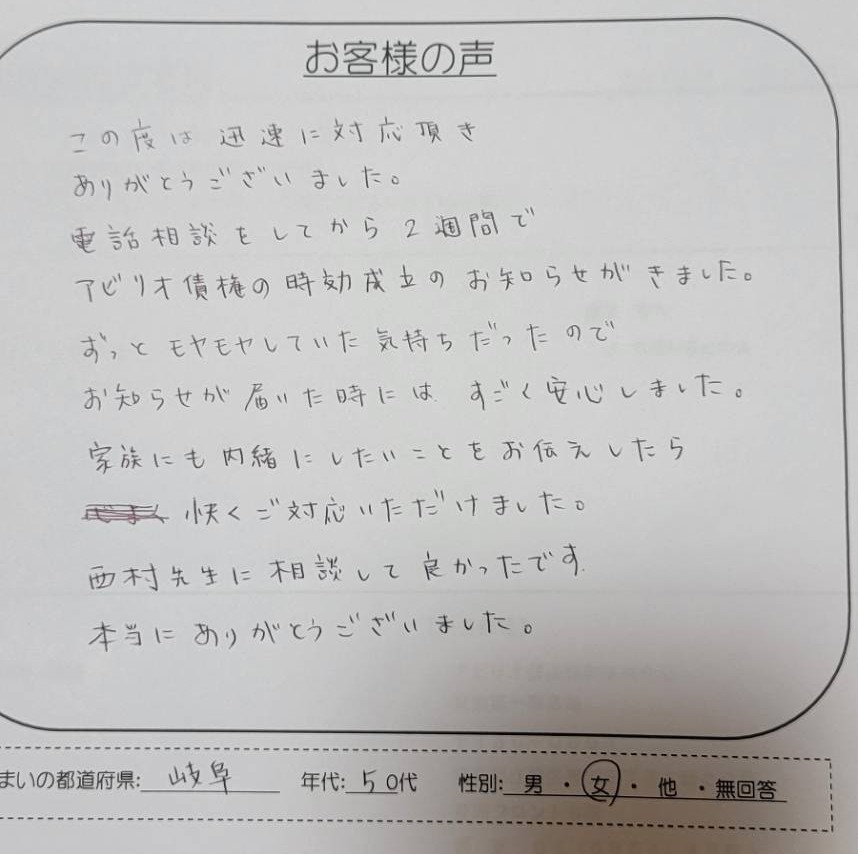 お客様の声
この度は 迅速に対応頂き
ありがとうございました。
電話相談をしてから 2週間で
アビリオ債権の時効成立の お知らせがきました。
ずっと モヤモヤしていた 気持ちだったので
お知らせが 届いた時には すごく安心しました。
家族にも内緒にしたいことをお伝えしたら
快くご対応いただけました。
西村先生に相談して 良かったです
本当に ありがとうございました。
まいの都道府県: 岐阜 年代: 50代 性別: 男 ・ 女 ・ 他 ・ 無回答